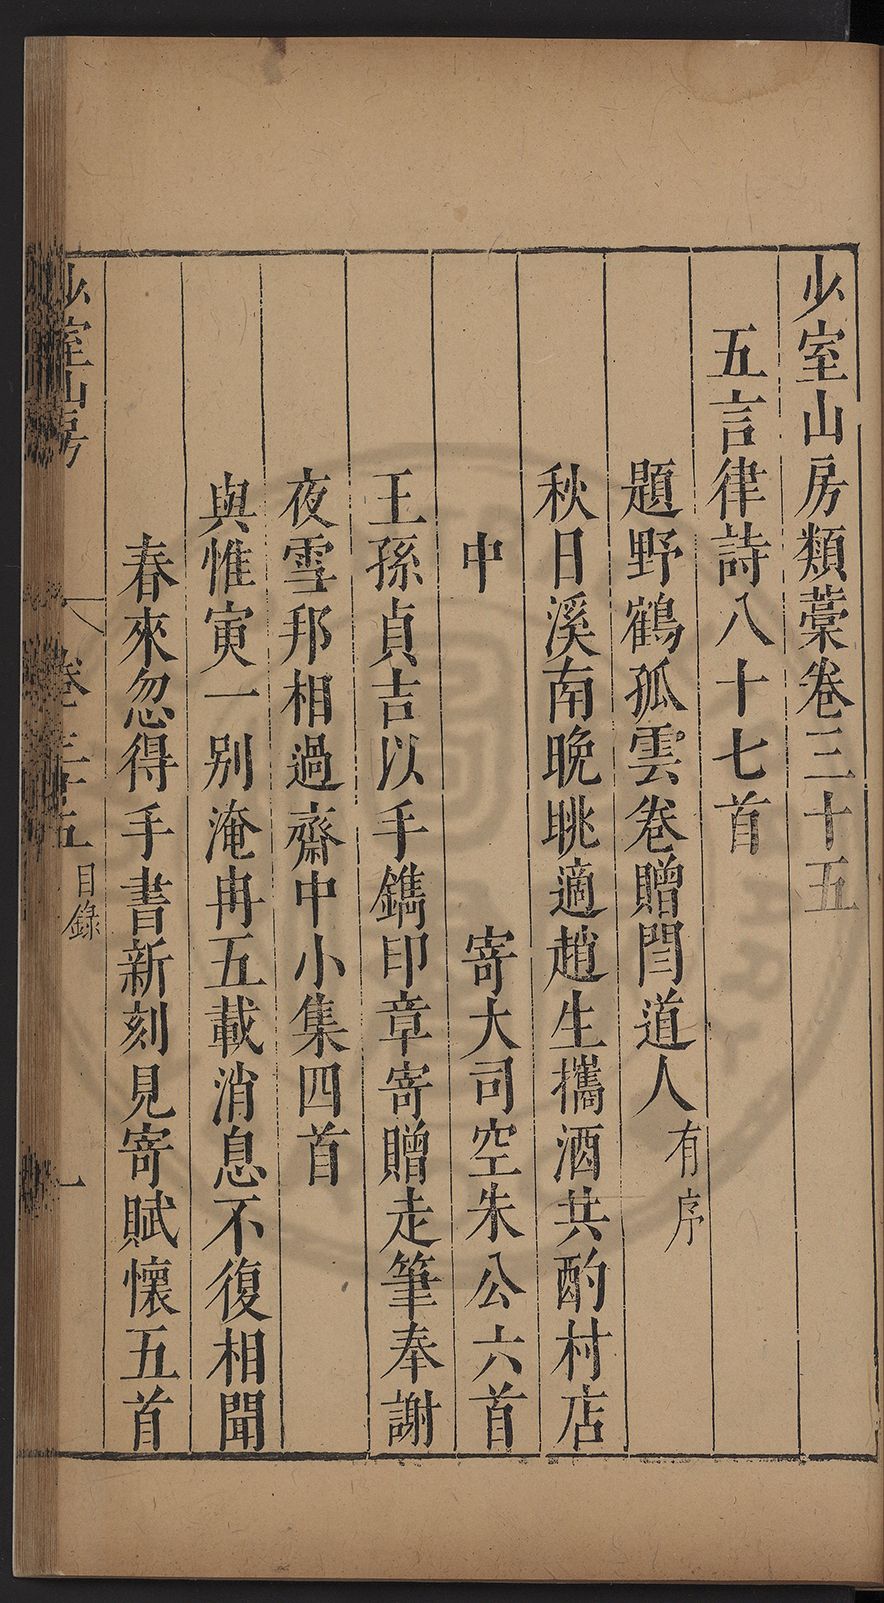 少室山房類藁卷三十五
五言律詩八十七首
題野鶴孤雲卷贈閆道人有序
秋日溪南晚眺適趙生攜酒共酌村店
中　寄大司空朱公六首
王孫貞吉以手鐫印章寄贈走筆奉謝
夜雪邦相過齋中小集四首
與惟寅一別淹冉五載消息不復相聞
春來忽得手書新刻見寄賦懷五首
少室山房　卷三十五目錄　一